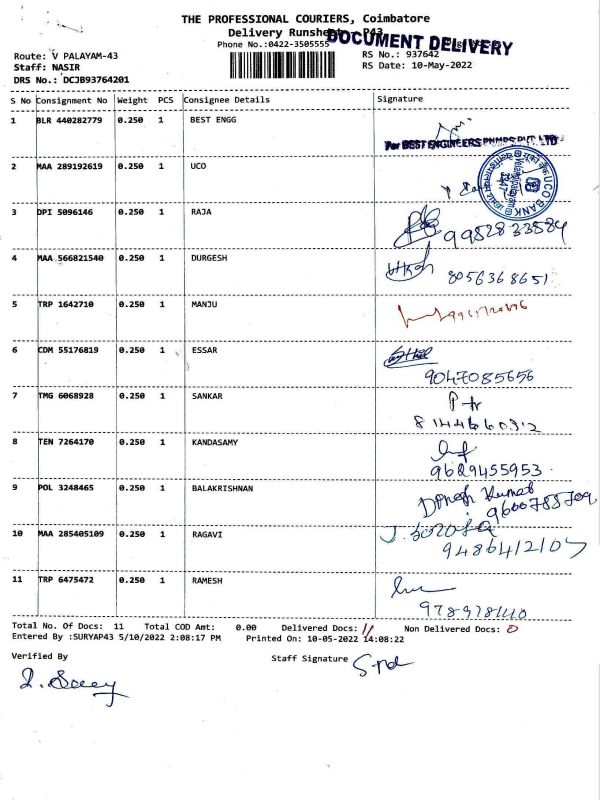 THE PROFESSIONAL COURIERS, Coimbatore
Delivery Runsheet - P43
DOCUMENT DELIVERY
Phone No.:0422-3505555
Route: V PALAYAM-43
RS No.: 937642
Staff: NASIR
RS Date: 10-May-2022
DRS No.: DCJB93764201
S No Consignment No Weight PCS Consignee Details Signature
1 BLR 440282779 0.250 1 BEST ENGG
For BEST ENGINEERS PUMPS PVT. LTD
2 MAA 289192619 0.250 1 UCO
UCO BANK
3 DPI 5096146 0.250 1 RAJA
9952833584
4 MAA 566821540 0.250 1 DURGESH
8056368651
5 TRP 1642710 0.250 1 MANJU
6 CDM 55176819 0.250 1 ESSAR
9047085656
7 TMG 6068928 0.250 1 SANKAR
8 TEN 7264170 0.250 1 KANDASAMY
9629455953
9 POL 3248465 0.250 1 BALAKRISHNAN
Dinesh Kumar
9600788709
10 MAA 285405109 0.250 1 RAGAVI
9486412107
11 TRP 6475472 0.250 1 RAMESH
Total No. Of Docs: 11 Total COD Amt: 0.00 Delivered Docs: 11 Non Delivered Docs: 0
Entered By :SURYAP43 5/10/2022 2:08:17 PM Printed On: 10-05-2022 14:08:22
Verified By Staff Signature